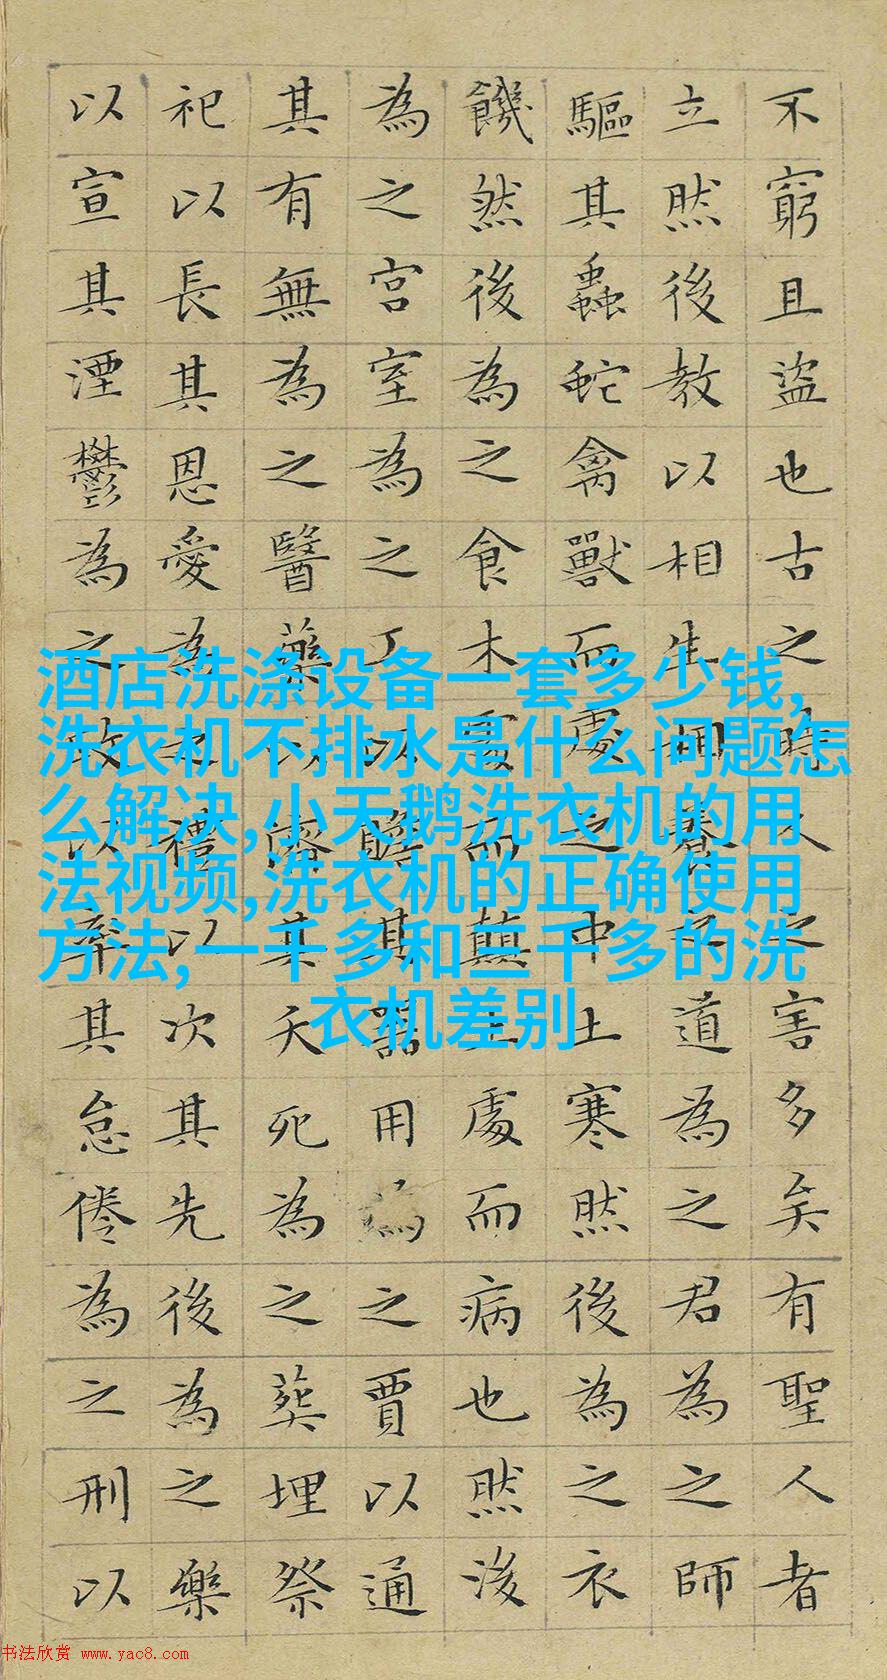 不窮且盜也古之時人之害多矣有聖人者
立然後教以相生相養之道為之君為之師
驅其蟲蛇禽獸而處之中土寒然後為之衣
饑然後為之食木處而顛土處而病也然後
為之宮室為之工以贍其器用為之賈以通
其有無為之醫藥以濟其夭死為之葬埋祭
祀以長其恩愛為之禮以次其先後為之樂
以宣其湮鬱為之政以率其怠倦為之刑以
酒店洗涤设备一套多少钱,
洗衣机不排水是什么问题怎
么解决,小天鹅洗衣机的用
法视频,洗衣机的正确使用
方法,一千多和三千多的洗
衣机差别
书法欣赏 www.yac8.com